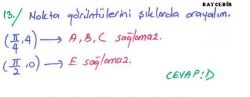 BAYCEBİR
13./ Nokta görüntülerini şıklarda arayalım.
(π/4, 4) → A, B, C sağlamaz.
(π/2, 0) → E sağlamaz.
CEVAP: D